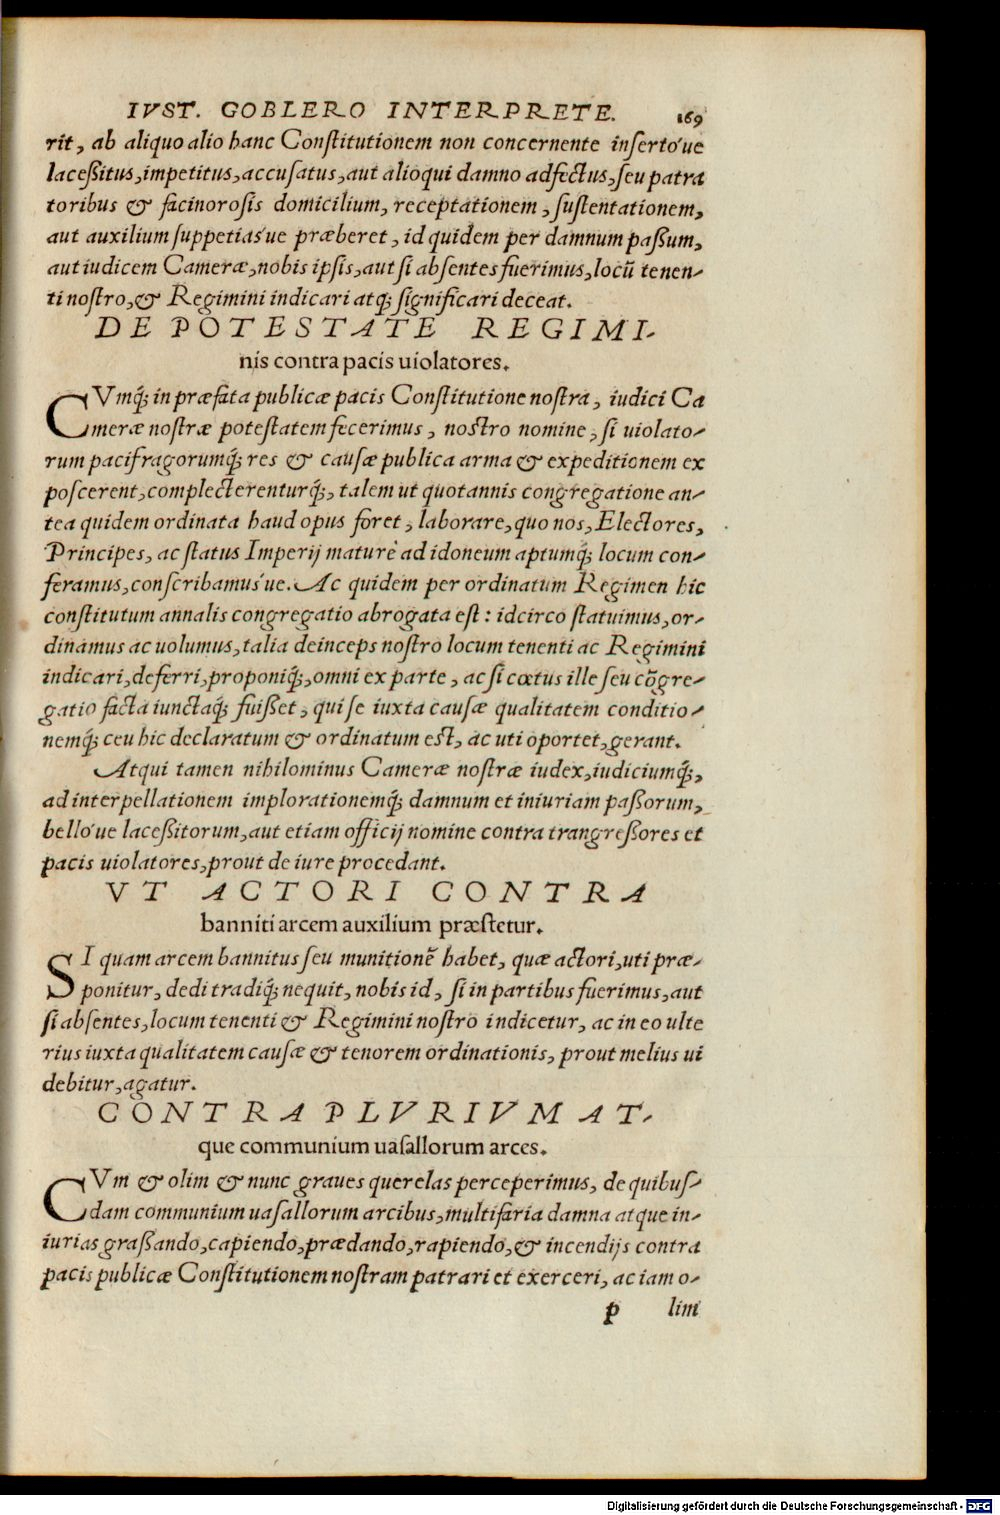 IVST. GOBLERO INTERPRETE. 169
rit, ab aliquo alio hanc Constitutionem non concernente inserto´ue
laceßitus, impetitus, accusatus, aut alioqui damno adfectus, seu patra
toribus & facinorosis domicilium, receptationem, sustentationem,
aut auxilium suppetias´ue præberet, id quidem per damnum paßum,
aut iudicem Cameræ, nobis ipsis, aut si absentes fuerimus, locũ tenen-
ti nostro, & Regimini indicari atq́; significari deceat.
DE POTESTATE REGIMI-
nis contra pacis uiolatores.
CVmq́; in præfata publicæ pacis Constitutione nostra, iudici Ca
meræ nostræ potestatem fecerimus, nostro nomine, si uiolato-
rum pacifragorumq́; res & causæ publica arma & expeditionem ex
poscerent, complecterenturq́;, talem ut quotannis congregatione an-
tea quidem ordinata haud opus foret, laborare, quo nos, Electores,
Principes, ac status Imperij maturè ad idoneum aptumq́; locum con-
feramus, conscribamus´ue. Ac quidem per ordinatum Regimen hic
constitutum annalis congregatio abrogata est: idcirco statuimus, or-
dinamus ac uolumus, talia deinceps nostro locum tenenti ac Regimini
indicari, deferri, proponiq́;, omni ex parte, ac si cœtus ille seu cõgre-
gatio facta iunctaq́; fuißet, qui se iuxta causæ qualitatem conditio-
nemq́; ceu hic declaratum & ordinatum est, ac uti oportet, gerant.
Atqui tamen nihilominus Cameræ nostræ iudex, iudiciumq́;,
ad interpellationem implorationemq́; damnum et iniuriam paßorum,
bello´ue laceßitorum, aut etiam officij nomine contra trangreßores et
pacis uiolatores, prout de iure procedant.
VT ACTORI CONTRA
banniti arcem auxilium præstetur.
SI quam arcem bannitus seu munitionẽ habet, quæ actori, uti præ-
ponitur, dedi tradiq́; nequit, nobis id, si in partibus fuerimus, aut
si absentes, locum tenenti & Regimini nostro indicetur, ac in eo ulte
rius iuxta qualitatem causæ & tenorem ordinationis, prout melius ui
debitur, agatur.
CONTRA PLVRIVM AT-
que communium uasallorum arces.
CVm & olim & nunc graues querelas perceperimus, de quibus-
dam communium uasallorum arcibus, multifaria damna atque in-
iurias graßando, capiendo, prædando, rapiendo, & incendijs contra
pacis publicæ Constitutionem nostram patrari et exerceri, ac iam o-
p lim
Digitalisierung gefördert durch die Deutsche Forschungsgemeinschaft - DFG